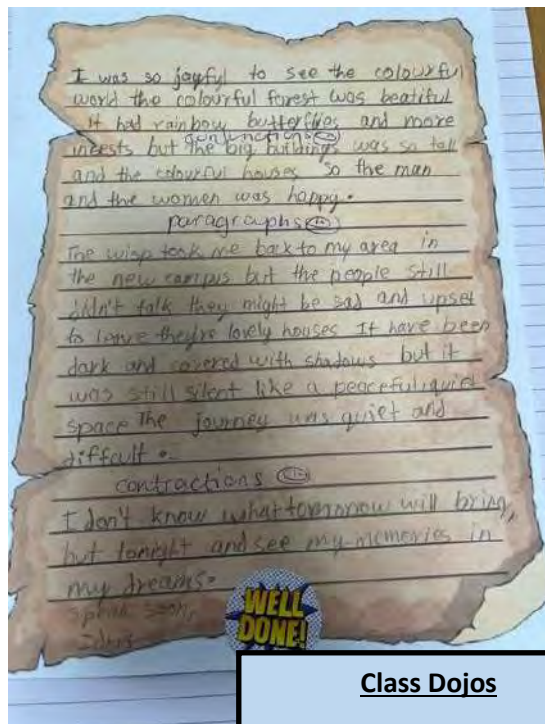 I was so joyful to see the colourful
world the colourful forest was beatiful
it had rainbow butterflies and more
conjunctions
insests but the big buildings was so tall
and the colourful houses so the man
and the women was happy.
paragraphs
The wisp took me back to my area in
the new campus but the people still
didn't talk they might be sad and upset
to leave they're lovely houses It have been
dark and covered with shadows but it
was still silent like a peaceful quiet
space The journey was quiet and
difficult.
contractions
I don't know what tomorrow will bring,
but tonight and see my memories in
my dreams.
speak soon,
WELL
DONE!
Class Dojos